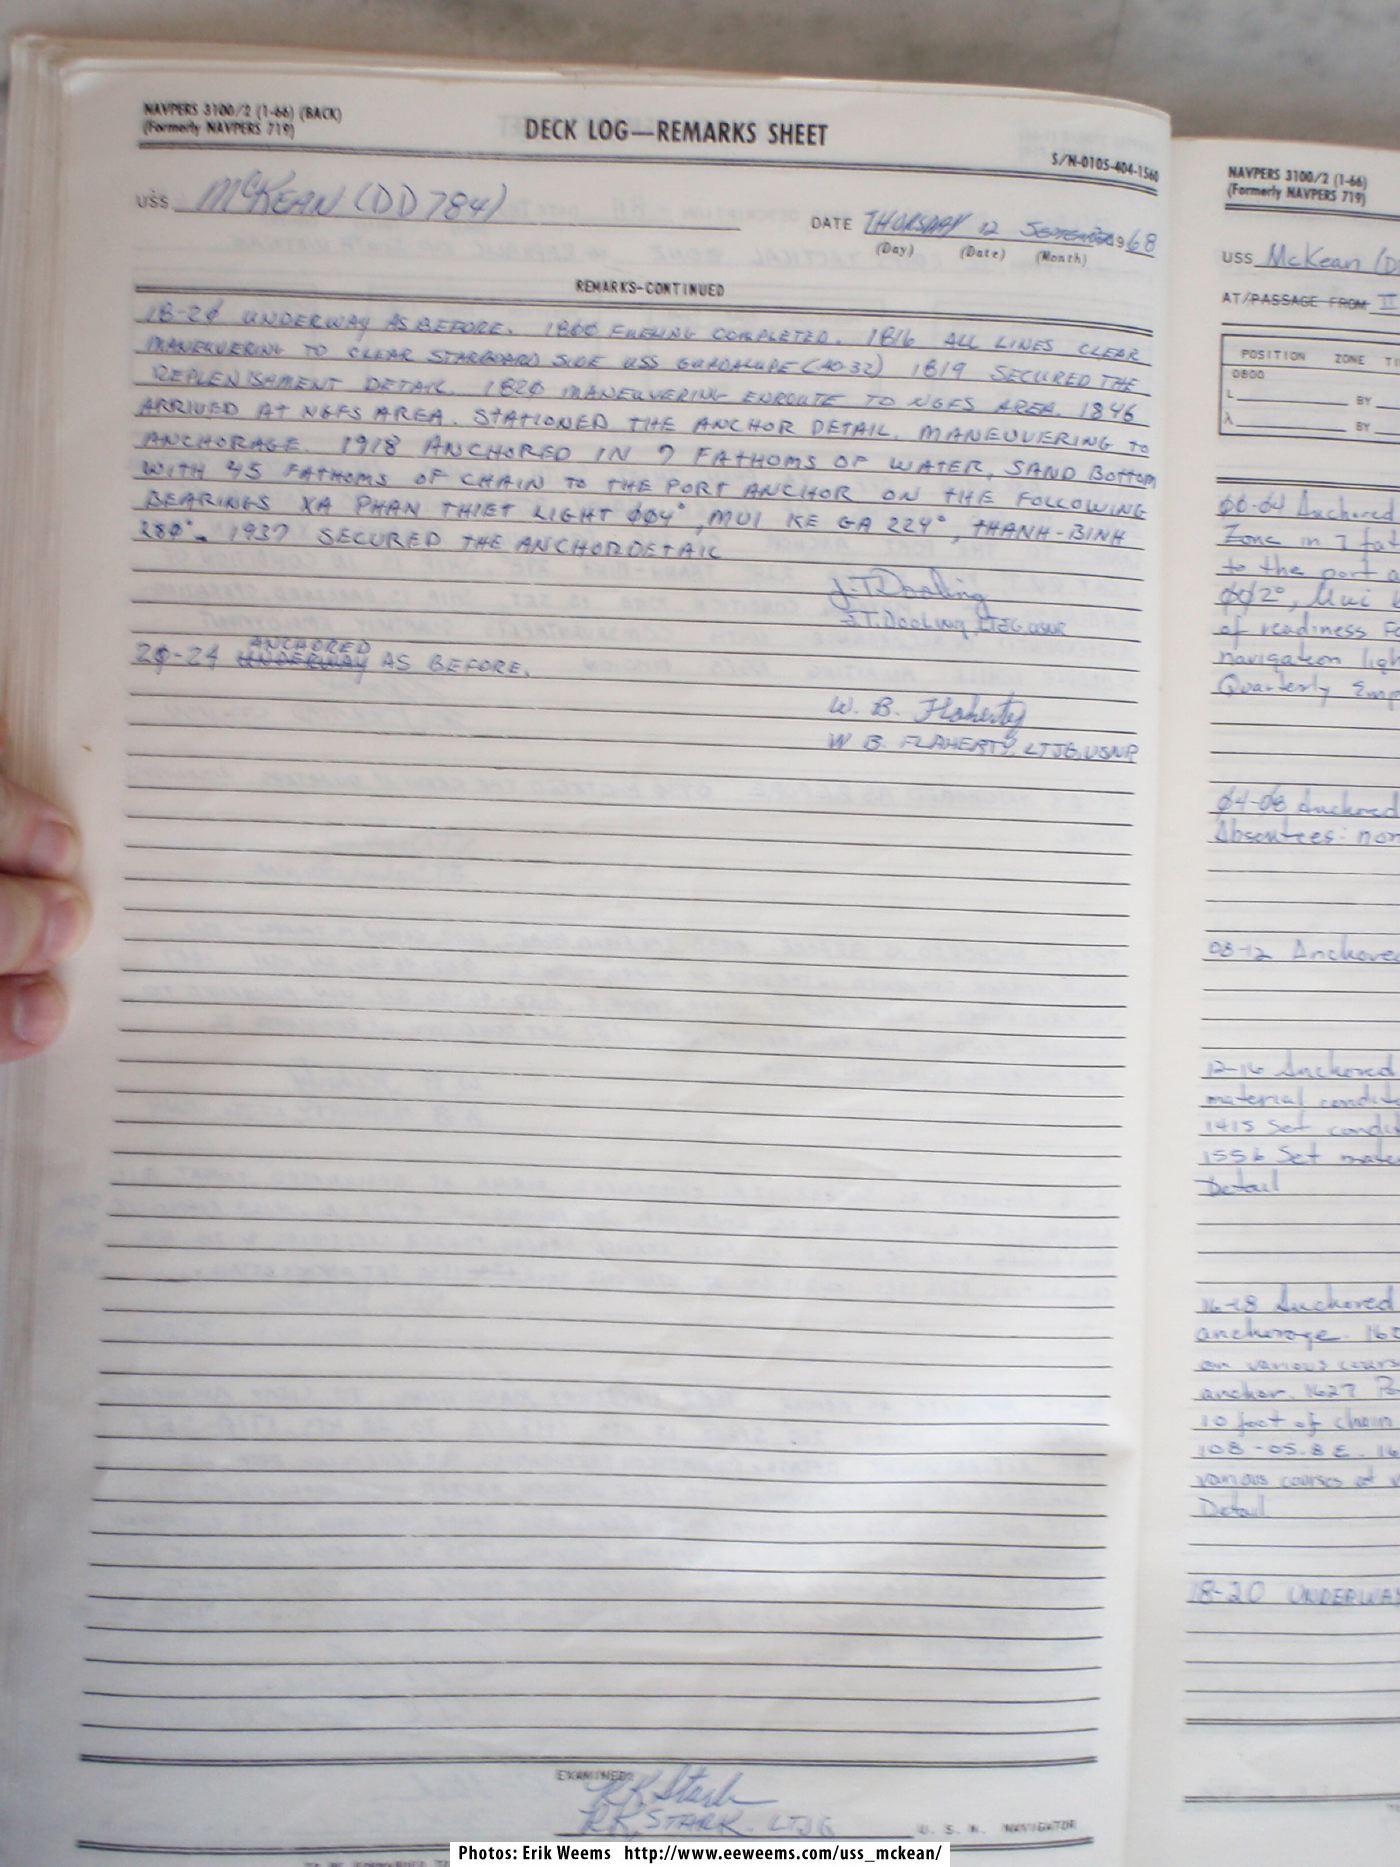 NAVPERS 3100/2 (1-66) (BACK)
(Formerly NAVPERS 719)
DECK LOG—REMARKS SHEET
S/N-0105-404-1560
USS McKEAN (DD 784)
DATE THURSDAY 12 SEPTEMBER 1968
(Day) (Date) (Month)
REMARKS-CONTINUED
18-2Ø UNDERWAY AS BEFORE. 18ØØ FUELING COMPLETED. 1816 ALL LINES CLEAR
MANEUVERING TO CLEAR STARBOARD SIDE USS GUADALUPE (AO-32) 1819 SECURED THE
REPLENISHMENT DETAIL. 182Ø MANEUVERING ENROUTE TO NGFS AREA. 1846
ARRIVED AT NGFS AREA. STATIONED THE ANCHOR DETAIL. MANEUVERING TO
ANCHORAGE. 1918 ANCHORED IN 7 FATHOMS OF WATER, SAND BOTTOM
WITH 45 FATHOMS OF CHAIN TO THE PORT ANCHOR ON THE FOLLOWING
BEARINGS XA PHAN THIET LIGHT ØØ4°, MUI KE GA 224°, THANH-BINH
28Ø°. 1937 SECURED THE ANCHOR DETAIL
J.T. Dooling
J.T. Dooling, LTJG, USNR
ANCHORED
2Ø-24 UNDERWAY AS BEFORE.
W. B. Flaherty
W B. FLAHERTY, LTJG, USNR
EXAMINED:
RK Stark
RK, STARK. LTJG
U. S. N. NAVIGATOR
NAVPERS 3100/2 (1-66)
(Formerly NAVPERS 719)
USS McKean (D
AT/PASSAGE FROM II
POSITION ZONE TI
0800
L BY
λ BY
ØØ-Ø4 Anchored
Zone in 7 fat
to the port a
ØØ2°, Mui
of readiness
navigation ligh
Quarterly Emp
Ø4-Ø8 Anchored
Absentees: non
08-12 Anchored
12-16 Anchored
material condit
1415 Set condi
1556 Set mate
Detail
16-18 Anchored
anchorage. 16
on various cours
anchor. 1627 Po
10 foot of chain
108-05.8 E. 16
various courses at v
Detail
18-20 UNDERWAY
Photos: Erik Weems http://www.eeweems.com/uss_mckean/